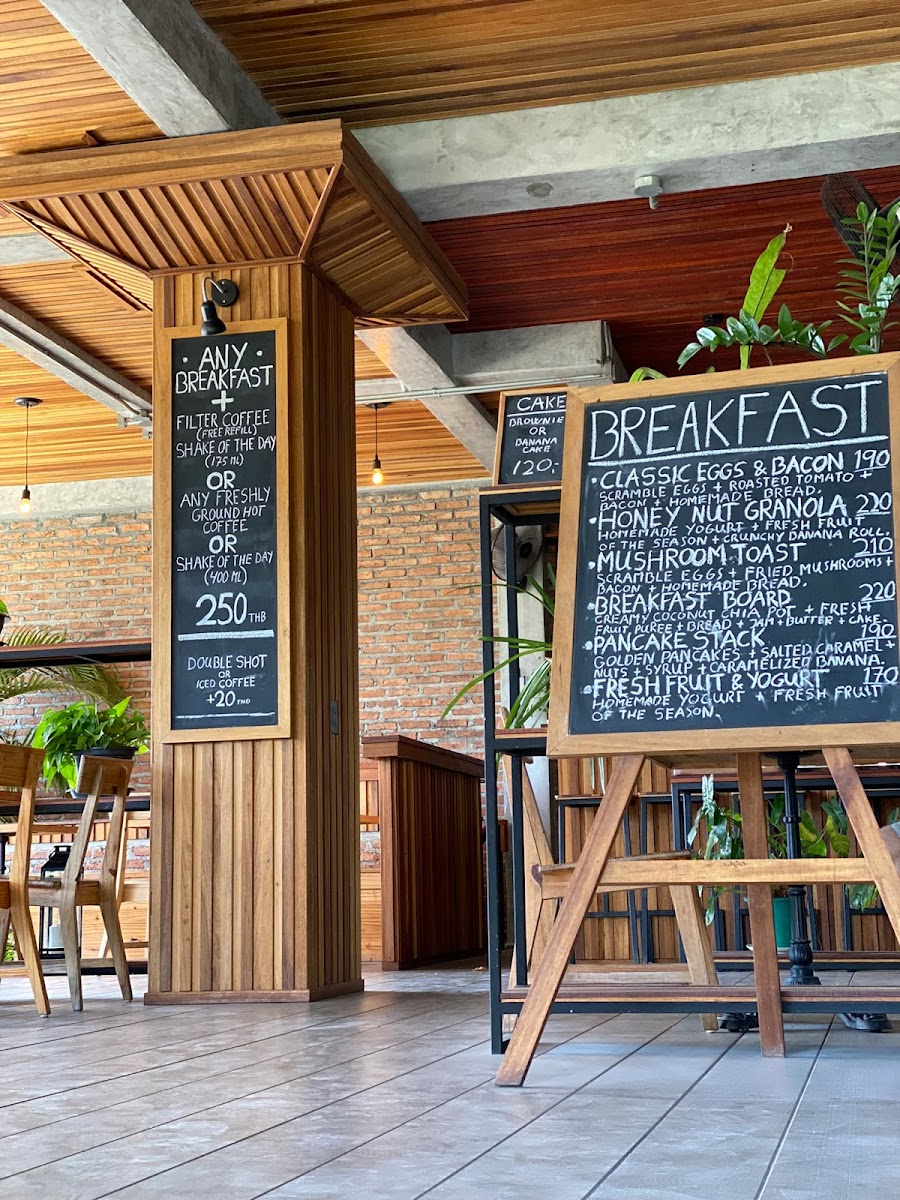 • ANY •
BREAKFAST
+
FILTER COFFEE
(FREE REFILL)
SHAKE OF THE DAY
(175 ML)
OR
ANY FRESHLY
GROUND HOT
COFFEE
OR
SHAKE OF THE DAY
(400 ML)
250 THB
DOUBLE SHOT
OR
ICED COFFEE
+20 THB
CAKE
BROWNIE
OR
BANANA
CAKE
120,-
BREAKFAST
• CLASSIC EGGS & BACON 190
SCRAMBLE EGGS + ROASTED TOMATO +
BACON + HOMEMADE BREAD.
• HONEY NUT GRANOLA 220
HOMEMADE YOGURT + FRESH FRUIT
OF THE SEASON + CRUNCHY BANANA ROLL.
• MUSHROOM TOAST 210
SCRAMBLE EGGS + FRIED MUSHROOMS +
BACON + HOMEMADE BREAD.
• BREAKFAST BOARD 220
CREAMY COCONUT CHIA POT + FRESH
FRUIT PUREE + BREAD + JAM + BUTTER + CAKE.
• PANCAKE STACK 190
GOLDEN PANCAKES + SALTED CARAMEL +
NUTS + SYRUP + CARAMELIZED BANANA.
• FRESH FRUIT & YOGURT 170
HOMEMADE YOGURT + FRESH FRUIT
OF THE SEASON.